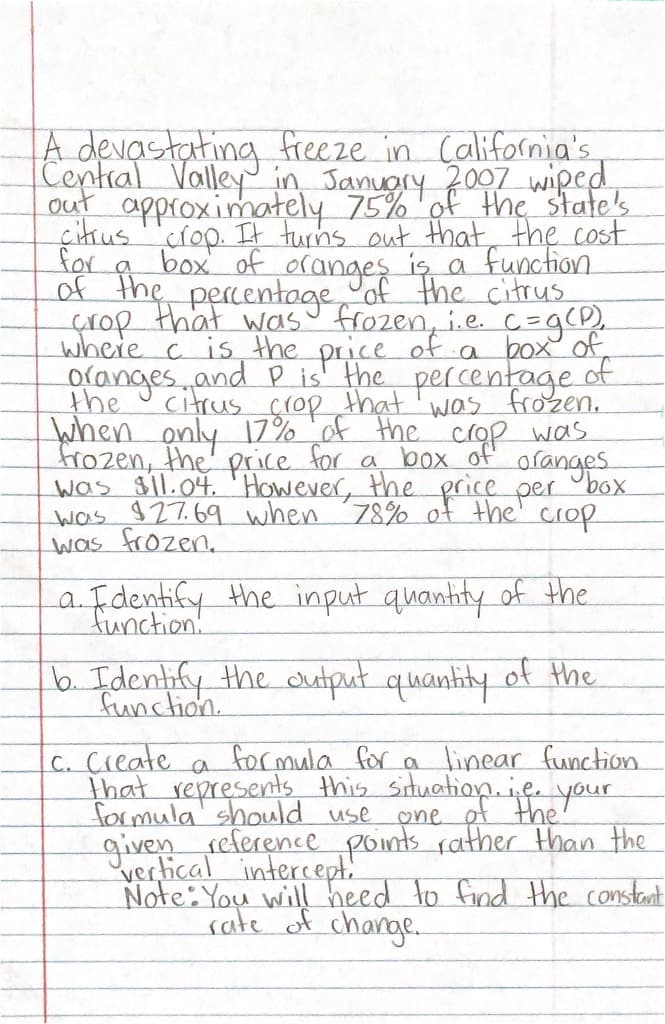 A devastating freeze in California's
Central Valley in January 2007 wiped
out approximately 75% of the state's
citrus crop. It turns out that the cost
for a box of oranges is a function
of the percentage of the citrus
crop that was frozen, i.e. c=g(P),
where c is the price of a box of
oranges and P is the percentage of
the citrus crop that was frozen.
When only 17% of the crop was
frozen, the price for a box of oranges
was $11.04. However, the price per box
was $27.69 when 78% of the crop
was frozen.
a. Identify the input quantity of the
function.
b. Identify the output quantity of the
function.
c. Create a formula for a linear function
that represents this situation. i.e. your
formula should use one of the
given reference points rather than the
vertical intercept.
Note: You will need to find the constant
rate of change.